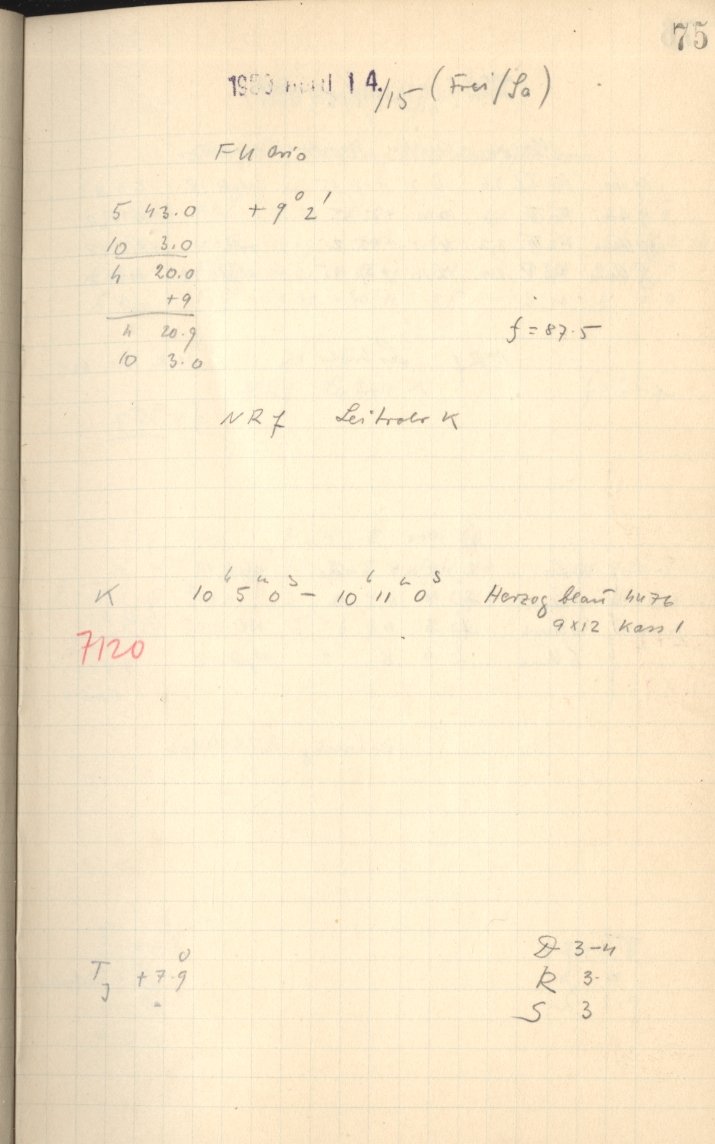 75
1950 April 14./15 (Frei/Sa)
FU Orio
5 43.0 + 9° 2'
10 3.0
4 20.0
+9
4 20.9
10 3.0
f = 87.5
NRf Leitrohr K
K 10h 5m 0s – 10h 11m 0s Herzog blau 4476
9x12 Kass 1
7120
TJ +7.9°
D 3-4
R 3
S 3